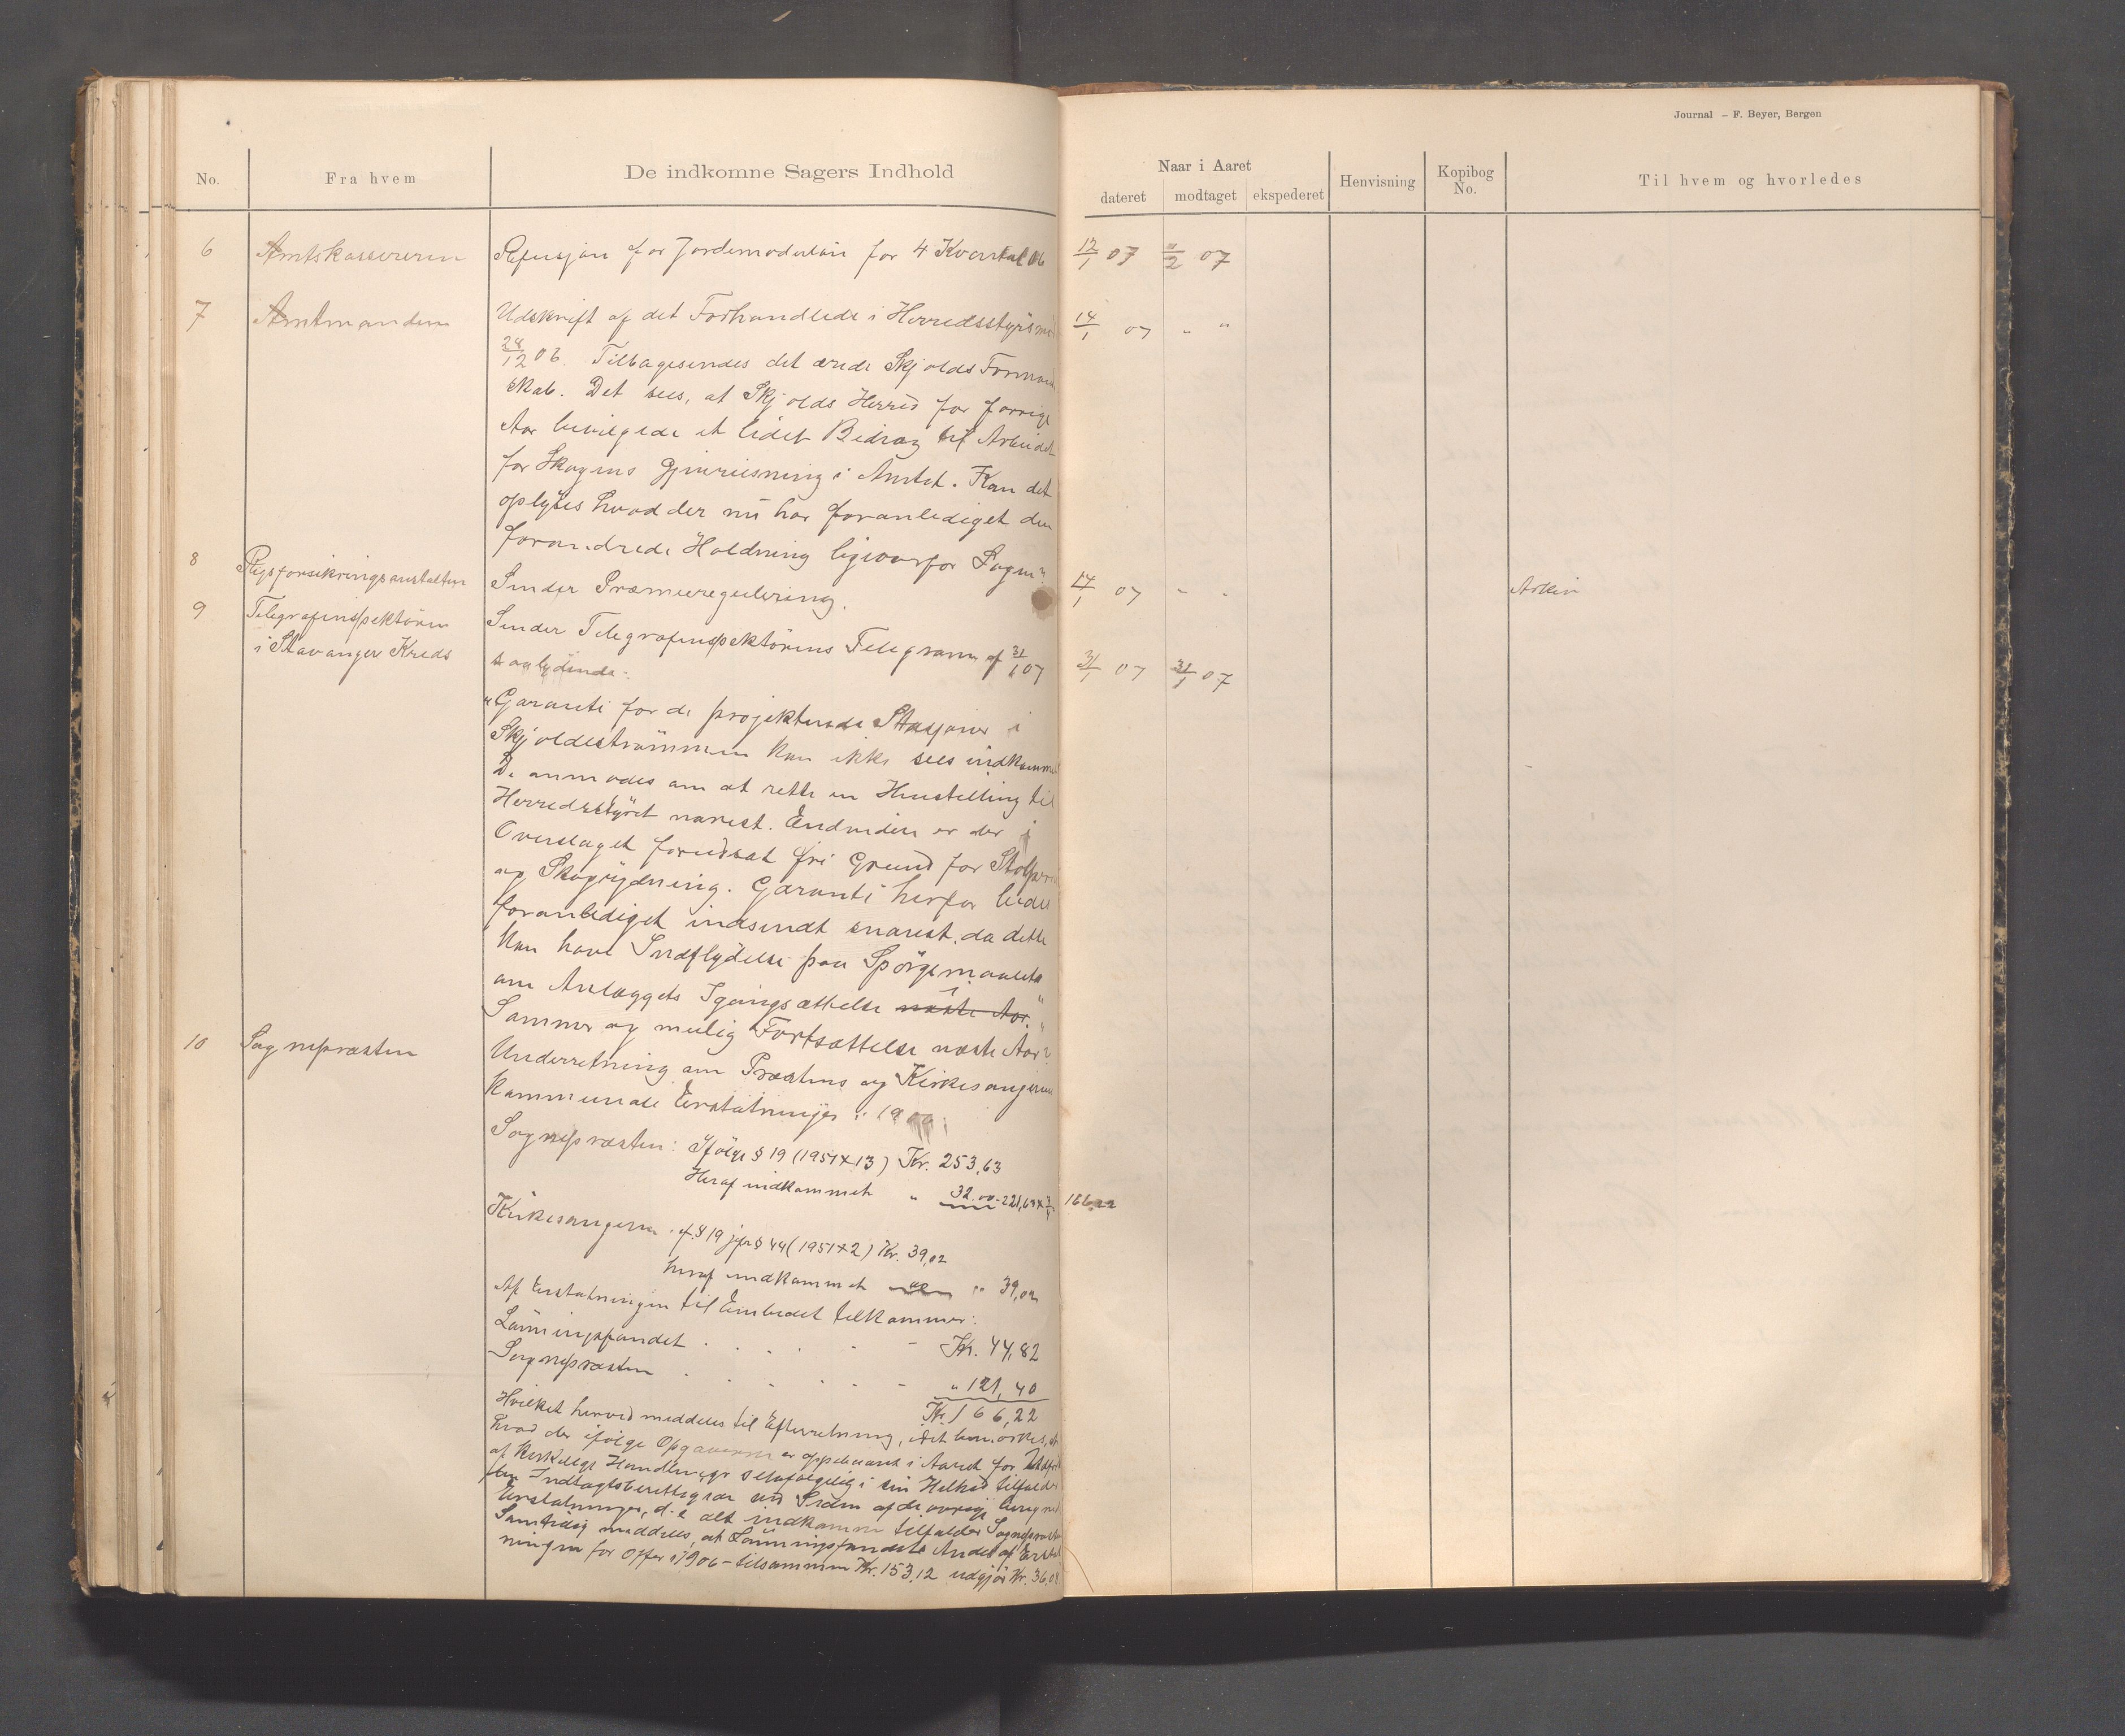 Journal – F. Beyer, Bergen
No.
Fra hvem
De indkomne Sagers Indhold
Naar i Aaret
dateret modtaget ekspederet
Henvisning
Kopibog No.
Til hvem og hvorledes
6 Amtskassereren Refusjon for Jordemoderløn for 4 Kvartal 06 12/1 07 11/2 07
7 Amtmanden Udskrift af det Forhandlede i Herredsstyrsmø 14/1 07 " "
28/12 06. Tilbagesendes det ærede Skjolds Formand
skab. Det sees, at Skjolds Herred for forrige
Aar bevilgede et lidet Bidrag til Arbeidet
for Skogens Gjenreisning i Amtet. Kan det
oplyses hvad der nu har foranlediget den
forandrede Holdning ligeoverfor Sagen?
8 Rigsforsikringsanstalten Sender Præmieregulering. 17/1 07 " " Arkiv
9 Telegrafinspektøren Sender Telegrafinspektørens Telegram af 31/1 07
i Stavanger Kreds saalydende: 31/1 07 31/1 07
"Garanti for de projekterede Stasjoner i
Skjoldestrømmen kan ikke sees indkommet
De anmodes om at rette en Henstilling til
Herredsstyret snarest. Endvidere er der i
Overslaget forudsat fri Grund for Stolperne
og Skogrydning. Garanti herfor bedes
foranlediget indsendt snarest, da dette
kan have Indflydelse paa Spørgsmaalet
om Anlæggets Igangsættelse næste Aar."
Sommer og mulig Fortsættelse næste Aar"
10 Sognepræsten Underretning om Præstens og Kirkesangerens
kommunale Erstatninger i 190
Sognepræsten: Ifølge § 19 (1951×13) Kr. 253,63
Heraf indkommet " 32.00 - 221,63 × 3/4 166,22
Kirkesangeren: if. § 19 jfr § 44 (1951×2) Kr. 39,02
heraf indkommet " 39,02
Af Erstatningen til Embedet tilkommer:
Lønningsfondet . . . . - Kr. 44,82
Sognepræsten . . - . . - " 121,40
Kr. 166,22
Hvilket herved meddeles til Efterretning, idet bemærkes, at
hvad der ifølge Opgaverne er oppebaaret i Aaret for Udfør
af kirkelige Handlinger selvfølgelig i sin Helhed tilfalder
den Indtægtsberettigede ved Siden af de øvrige beregnet
Erstatninger, d.e. alt indkomne tilfalder Sognepræsten
Samtidig meddeles, at Lønningsfondets Andel af Erstat
ningen for Offer i 1906 – tilsammen Kr. 153,12 udgjør Kr. 36,01